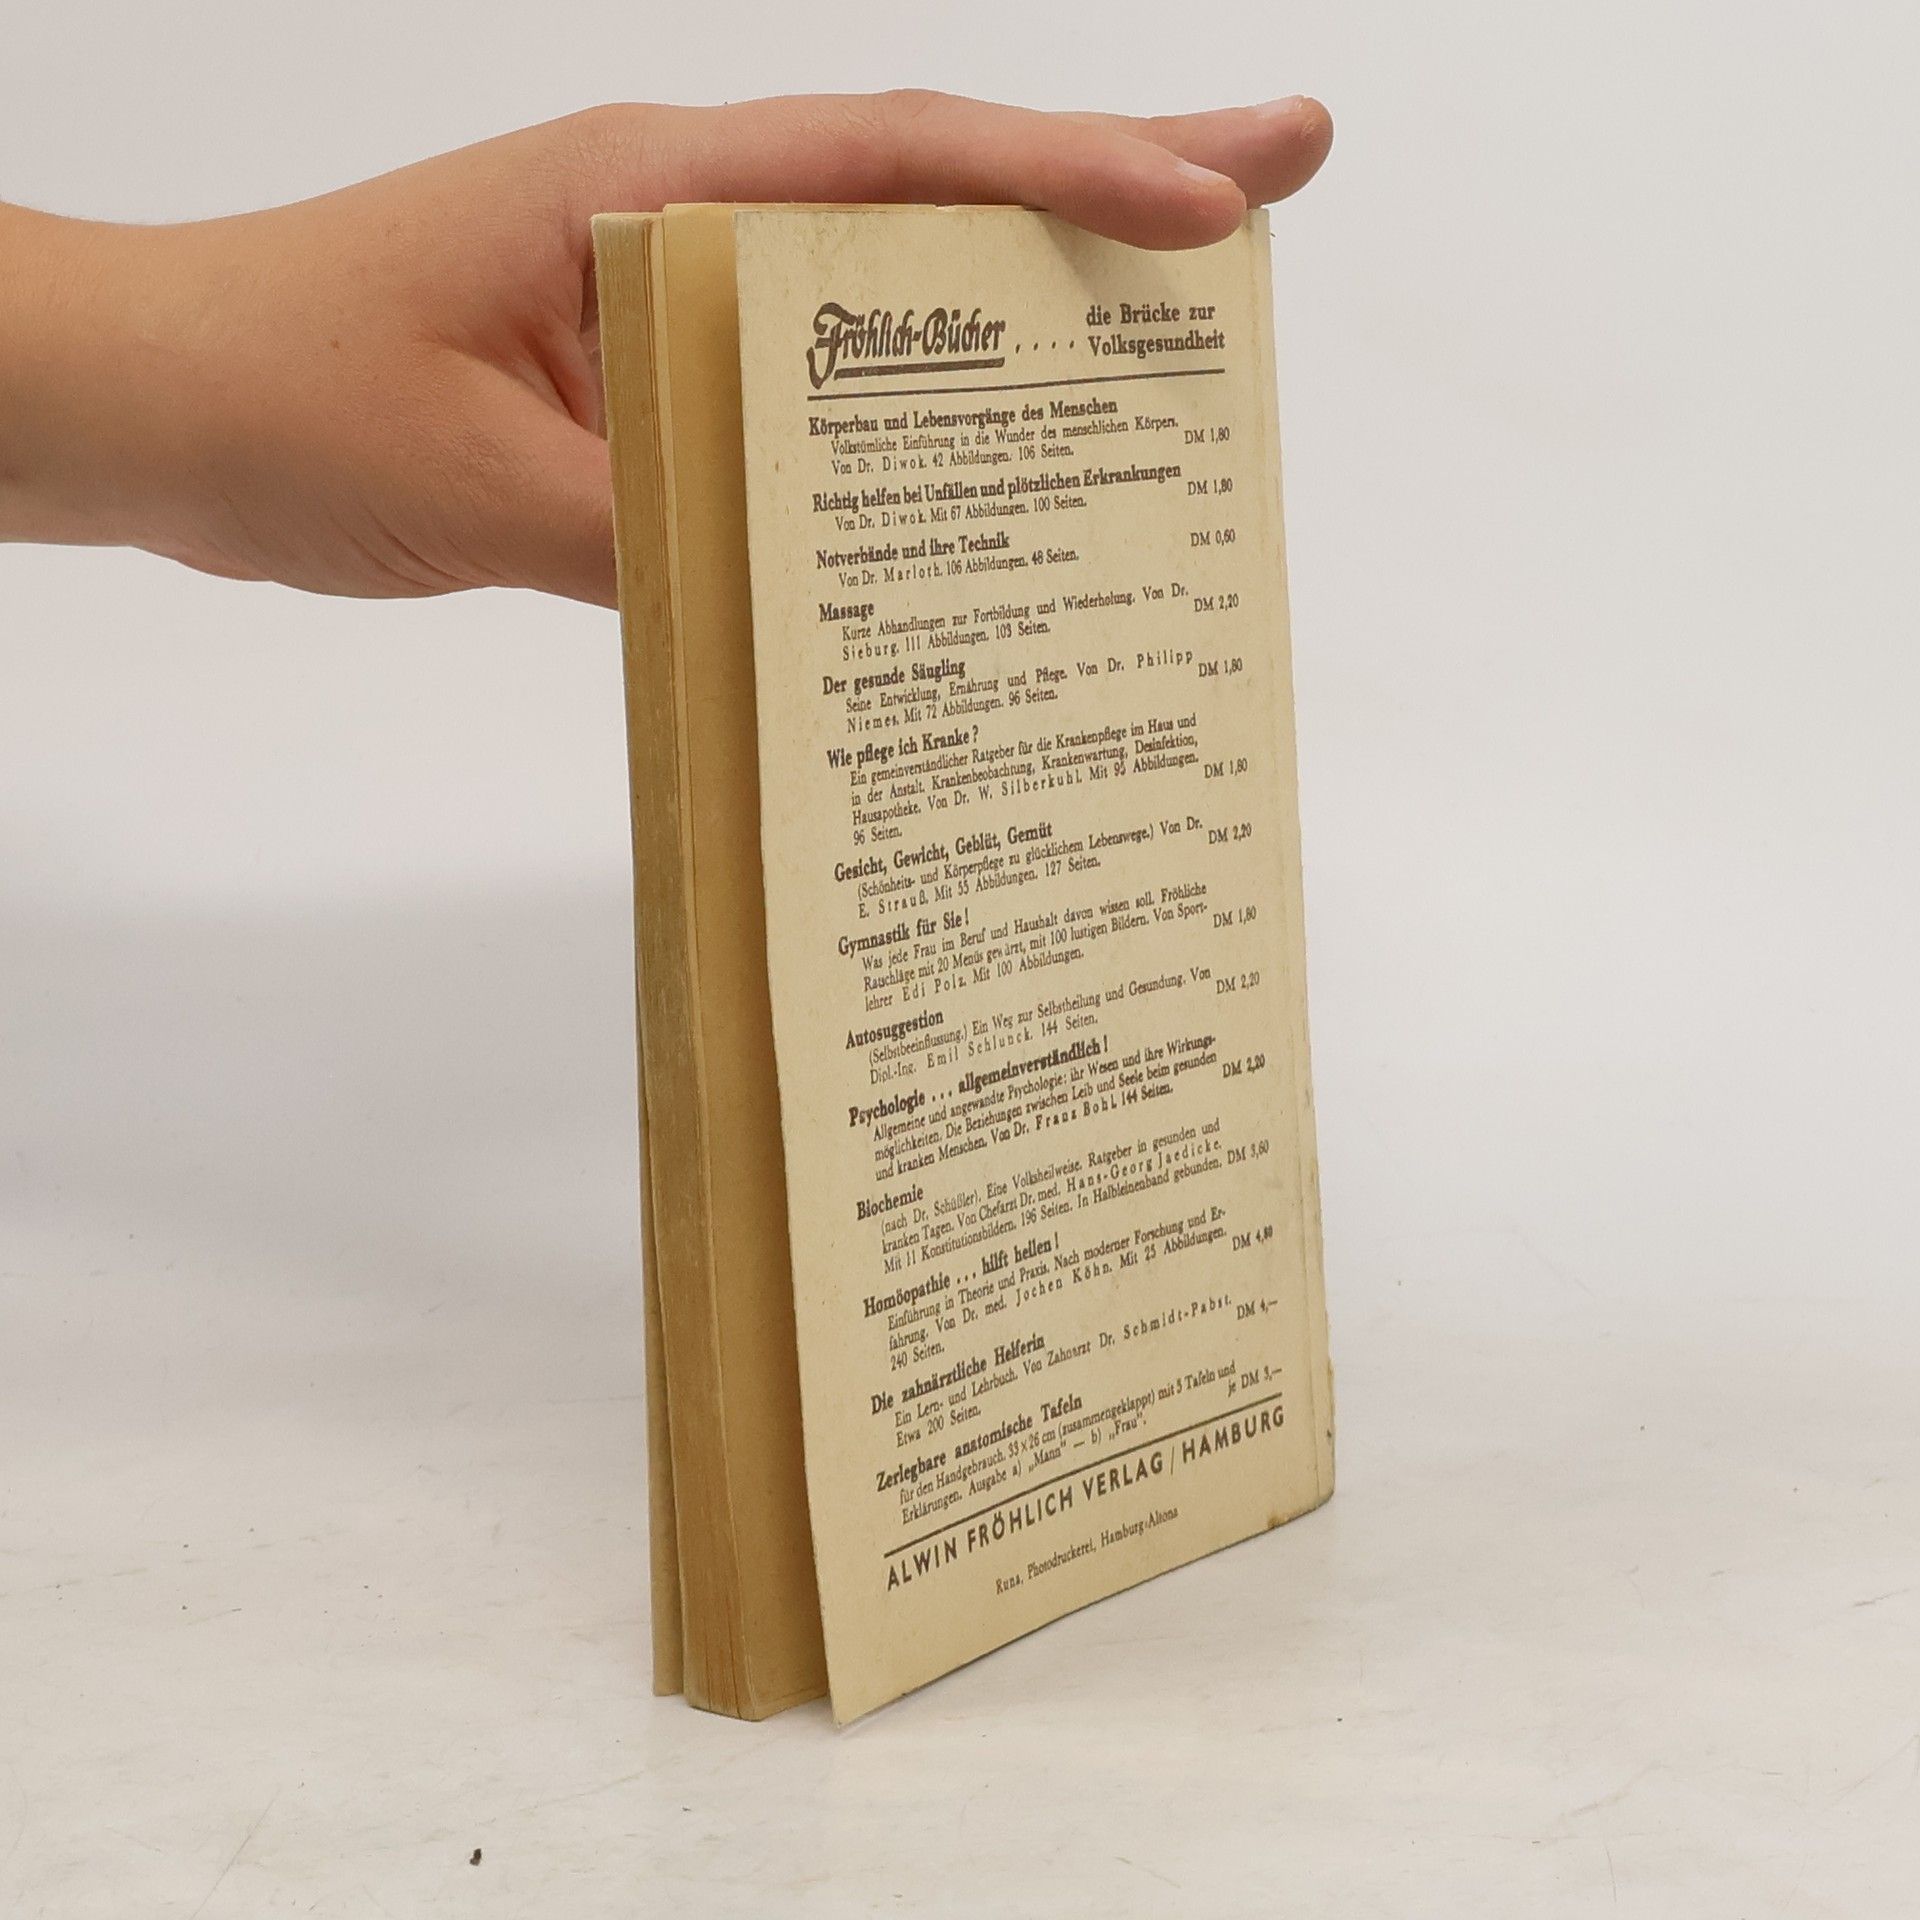 Fröhlich-Bücher . . . . die Brücke zur
Volksgesundheit
Körperbau und Lebensvorgänge des Menschen
Volkstümliche Einführung in die Wunder des menschlichen Körpers.
Von Dr. Diwok. 42 Abbildungen. 106 Seiten. DM 1,80
Richtig helfen bei Unfällen und plötzlichen Erkrankungen
Von Dr. Diwok. Mit 67 Abbildungen. 100 Seiten. DM 1,80
Notverbände und ihre Technik
Von Dr. Marloth. 106 Abbildungen. 48 Seiten. DM 0,60
Massage
Kurze Abhandlungen zur Fortbildung und Wiederholung. Von Dr.
Sieburg. 111 Abbildungen. 103 Seiten. DM 2,20
Der gesunde Säugling
Seine Entwicklung, Ernährung und Pflege. Von Dr. Philipp
Niemes. Mit 72 Abbildungen. 96 Seiten. DM 1,80
Wie pflege ich Kranke?
Ein gemeinverständlicher Ratgeber für die Krankenpflege im Haus und
in der Anstalt. Krankenbeobachtung, Krankenwartung, Desinfektion,
Hausapotheke. Von Dr. W. Silberkuhl. Mit 95 Abbildungen.
96 Seiten. DM 1,80
Gesicht, Gewicht, Geblüt, Gemüt
(Schönheits- und Körperpflege zu glücklichem Lebenswege.) Von Dr.
E. Strauß. Mit 55 Abbildungen. 127 Seiten. DM 2,20
Gymnastik für Sie!
Was jede Frau im Beruf und Haushalt davon wissen soll. Fröhliche
Ratschläge mit 20 Menüs gewürzt, mit 100 lustigen Bildern. Von Sport-
lehrer Edi Polz. Mit 100 Abbildungen. DM 1,80
Autosuggestion
(Selbstbeeinflussung.) Ein Weg zur Selbstheilung und Gesundung. Von
Dipl.-Ing. Emil Schlunck. 144 Seiten. DM 2,20
Psychologie . . . allgemeinverständlich!
Allgemeine und angewandte Psychologie: ihr Wesen und ihre Wirkungs-
möglichkeiten. Die Beziehungen zwischen Leib und Seele beim gesunden
und kranken Menschen. Von Dr. Franz Bohl. 144 Seiten. DM 2,20
Biochemie
(nach Dr. Schüßler). Eine Volksheilweise. Ratgeber in gesunden und
kranken Tagen. Von Chefarzt Dr. med. Hans-Georg Jaedicke.
Mit 11 Konstitutionsbildern. 196 Seiten. In Halbleinenband gebunden. DM 3,60
Homöopathie . . . hilft heilen!
Einführung in Theorie und Praxis. Nach moderner Forschung und Er-
fahrung. Von Dr. med. Jochen Köhn. Mit 25 Abbildungen.
240 Seiten. DM 4,80
Die zahnärztliche Helferin
Ein Lern- und Lehrbuch. Von Zahnarzt Dr. Schmidt-Pabst.
Etwa 200 Seiten. DM 4,—
Zerlegbare anatomische Tafeln
für den Handgebrauch. 33 x 26 cm (zusammengeklappt) mit 5 Tafeln und
Erklärungen. Ausgabe a) „Mann“ — b) „Frau“. je DM 3,—
ALWIN FRÖHLICH VERLAG / HAMBURG
Runa, Photodruckerei, Hamburg-Altona